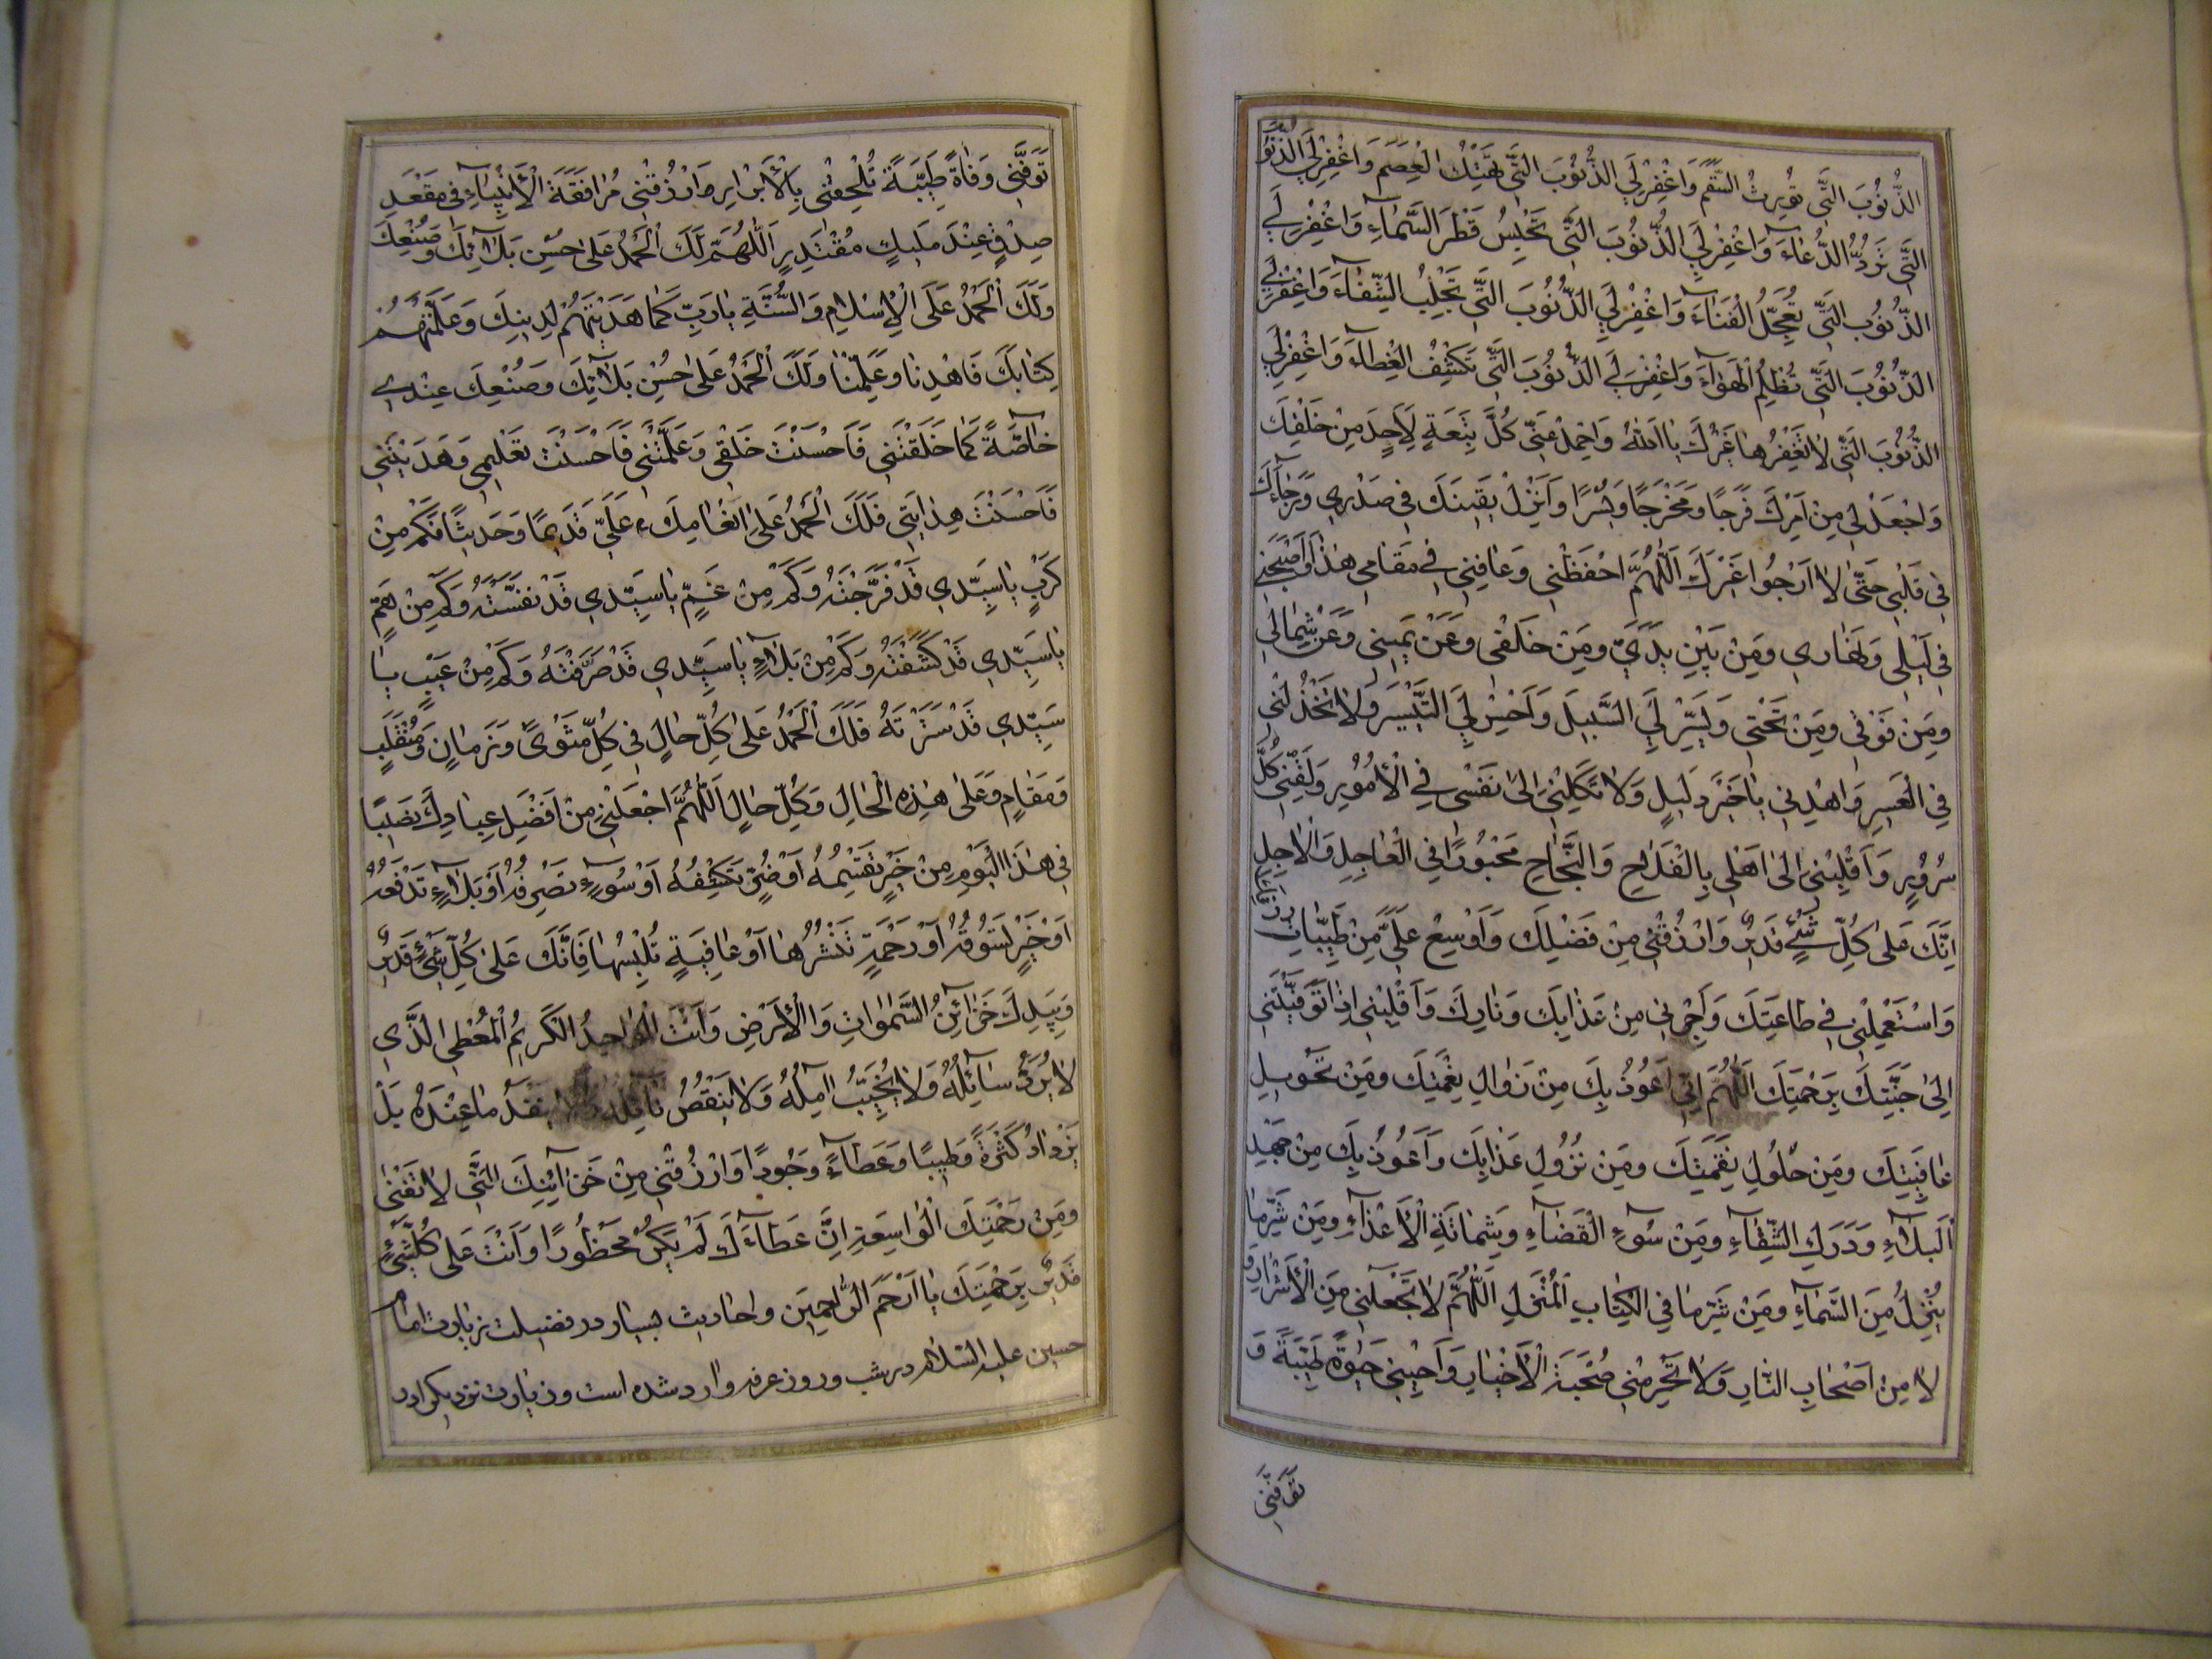 الذُّنُوبَ الَّتِي تُورِثُ السَّقَمَ وَاغْفِرْلِيَ الذُّنُوبَ الَّتِي تَهْتِكُ الْعِصَمَ وَاغْفِرْلِيَ الذُّنُوبَ
الَّتِي تَرُدُّ الدُّعَاءَ وَاغْفِرْلِيَ الذُّنُوبَ الَّتِي تَحْبِسُ قَطْرَ السَّمَاءِ وَاغْفِرْلِيَ
الذُّنُوبَ الَّتِي تُعَجِّلُ الْفَنَاءَ وَاغْفِرْلِيَ الذُّنُوبَ الَّتِي تَجْلِبُ الشَّقَاءَ وَاغْفِرْلِيَ
الذُّنُوبَ الَّتِي تُظْلِمُ الْهَوَاءَ وَاغْفِرْلِيَ الذُّنُوبَ الَّتِي تَكْشِفُ الْغِطَاءَ وَاغْفِرْلِيَ
الذُّنُوبَ الَّتِي لَا يَغْفِرُهَا غَيْرُكَ يَا اَللهُ وَاحْمِلْ عَنِّي كُلَّ تَبِعَةٍ لِأَحَدٍ مِنْ خَلْقِكَ
وَاجْعَلْ لِي مِنْ اَمْرِكَ فَرَجًا وَمَخْرَجًا وَيُسْرًا وَاَنْزِلْ يَقِينَكَ فِي صَدْرِي وَرَجَاءَكَ
فِي قَلْبِي حَتَّى لَا اَرْجُوا غَيْرَكَ اَللّٰهُمَّ احْفَظْنِي وَعَافِنِي فِي مَقَامِي هٰذَا وَاصْحَبْنِي
فِي لَيْلِي وَنَهَارِي وَمِنْ بَيْنِ يَدَيَّ وَمِنْ خَلْفِي وَعَنْ يَمِينِي وَعَنْ شِمَالِي
وَمِنْ فَوْقِي وَمِنْ تَحْتِي وَيَسِّرْ لِيَ السَّبِيلَ وَاَحْسِنْ لِيَ التَّيْسِيرَ وَلَا تَخْذُلْنِي
فِي الْعَسِيرِ وَاهْدِنِي يَا خَيْرَ دَلِيلٍ وَلَا تَكِلْنِي اِلَى نَفْسِي فِي الْأُمُورِ وَلَقِّنِي كُلَّ
سُرُورٍ وَاَقْلِبْنِي اِلَى اَهْلِي بِالْفَلَاحِ وَالنَّجَاحِ مَحْبُورًا فِي الْعَاجِلِ وَالْآجِلِ
اِنَّكَ عَلَى كُلِّ شَيْءٍ قَدِيرٌ وَارْزُقْنِي مِنْ فَضْلِكَ وَاَوْسِعْ عَلَيَّ مِنْ طَيِّبَاتِ رِزْقِكَ
وَاسْتَعْمِلْنِي فِي طَاعَتِكَ وَاَجِرْنِي مِنْ عَذَابِكَ وَنَارِكَ وَاَقْلِبْنِي اِذَا تَوَفَّيْتَنِي
اِلَى جَنَّتِكَ بِرَحْمَتِكَ اَللّٰهُمَّ اِنِّي اَعُوذُ بِكَ مِنْ زَوَالِ نِعْمَتِكَ وَمِنْ تَحْوِيلِ
عَافِيَتِكَ وَمِنْ حُلُولِ نِقْمَتِكَ وَمِنْ نُزُولِ عَذَابِكَ وَاَعُوذُ بِكَ مِنْ جَهْدِ
اَلْبَلَاءِ وَدَرَكِ الشَّقَاءِ وَمِنْ سُوءِ الْقَضَاءِ وَشَمَاتَةِ الْأَعْدَاءِ وَمِنْ شَرِّ مَا
يَنْزِلُ مِنَ السَّمَاءِ وَمِنْ شَرِّ مَا فِي الْكِتَابِ الْمُنْزَلِ اَللّٰهُمَّ لَا تَجْعَلْنِي مِنَ الْأَشْرَارِ وَ
لَا مِنْ اَصْحَابِ النَّارِ وَلَا تَحْرِمْنِي صُحْبَةَ الْأَخْيَارِ وَاَحْيِنِي حَيٰوةً طَيِّبَةً وَ
تَوَفَّنِي
تَوَفَّنِي وَفَاةً طَيِّبَةً تُلْحِقْنِي بِالْأَبْرَارِ وَارْزُقْنِي مُرَافَقَةَ الْأَنْبِيَاءِ فِي مَقْعَدِ
صِدْقٍ عِنْدَ مَلِيكٍ مُقْتَدِرٍ اَللّٰهُمَّ لَكَ الْحَمْدُ عَلَى حُسْنِ بَلَائِكَ وَصُنْعِكَ
وَلَكَ الْحَمْدُ عَلَى الْإِسْلَامِ وَالسُّنَّةِ يَا رَبِّ كَمَا هَدَيْتَهُمْ لِدِينِكَ وَعَلَّمْتَهُمْ
كِتَابَكَ فَاهْدِنَا وَعَلِّمْنَا وَلَكَ الْحَمْدُ عَلَى حُسْنِ بَلَائِكَ وَصُنْعِكَ عِنْدِي
خَاصَّةً كَمَا خَلَقْتَنِي فَاَحْسَنْتَ خَلْقِي وَعَلَّمْتَنِي فَاَحْسَنْتَ تَعْلِيمِي وَهَدَيْتَنِي
فَاَحْسَنْتَ هِدَايَتِي فَلَكَ الْحَمْدُ عَلَى اِنْعَامِكَ عَلَيَّ قَدِيمًا وَحَدِيثًا فَكَمْ مِنْ
كَرْبٍ يَا سَيِّدِي قَدْ فَرَّجْتَهُ وَكَمْ مِنْ غَمٍّ يَا سَيِّدِي قَدْ نَفَّسْتَهُ وَكَمْ مِنْ هَمٍّ
يَا سَيِّدِي قَدْ كَشَفْتَهُ وَكَمْ مِنْ بَلَاءٍ يَا سَيِّدِي قَدْ صَرَفْتَهُ وَكَمْ مِنْ عَيْبٍ يَا
سَيِّدِي قَدْ سَتَرْتَهُ فَلَكَ الْحَمْدُ عَلَى كُلِّ حَالٍ فِي كُلِّ مَثْوًى وَزَمَانٍ وَمُنْقَلَبٍ
وَمَقَامٍ وَعَلَى هٰذِهِ الْحَالِ وَكُلِّ حَالٍ اَللّٰهُمَّ اجْعَلْنِي مِنْ اَفْضَلِ عِبَادِكَ نَصِيبًا
فِي هٰذَا الْيَوْمِ مِنْ خَيْرٍ تَقْسِمُهُ اَوْ ضُرٍّ تَكْشِفُهُ اَوْ سُوءٍ تَصْرِفُهُ اَوْ بَلَاءٍ تَدْفَعُهُ
اَوْ خَيْرٍ تَسُوقُهُ اَوْ رَحْمَةٍ تَنْشُرُهَا اَوْ عَافِيَةٍ تُلْبِسُهَا فَاِنَّكَ عَلَى كُلِّ شَيْءٍ قَدِيرٌ
وَبِيَدِكَ خَزَائِنُ السَّمٰوَاتِ وَالْأَرْضِ وَاَنْتَ الْوَاحِدُ الْكَرِيمُ الْمُعْطِي الَّذِي
لَا يُرَدُّ سَائِلُهُ وَلَا يُخَيَّبُ آمِلُهُ وَلَا يَنْقُصُ نَائِلُهُ وَلَا يَنْفَدُ مَا عِنْدَهُ بَلْ
يَزْدَادُ كَثْرَةً وَطِيبًا وَعَطَاءً وَجُودًا وَارْزُقْنِي مِنْ خَزَائِنِكَ الَّتِي لَا تَفْنَى
وَمِنْ رَحْمَتِكَ الْوَاسِعَةِ اِنَّ عَطَاءَكَ لَمْ يَكُنْ مَحْظُورًا وَاَنْتَ عَلَى كُلِّ شَيْءٍ
قَدِيرٌ بِرَحْمَتِكَ يَا اَرْحَمَ الرَّاحِمِينَ واحاديث بسيار در فضيلت زيارت امام
حسين عليه السلام در شب وروز عرفه وارد شده است وزيارت نزديك اور